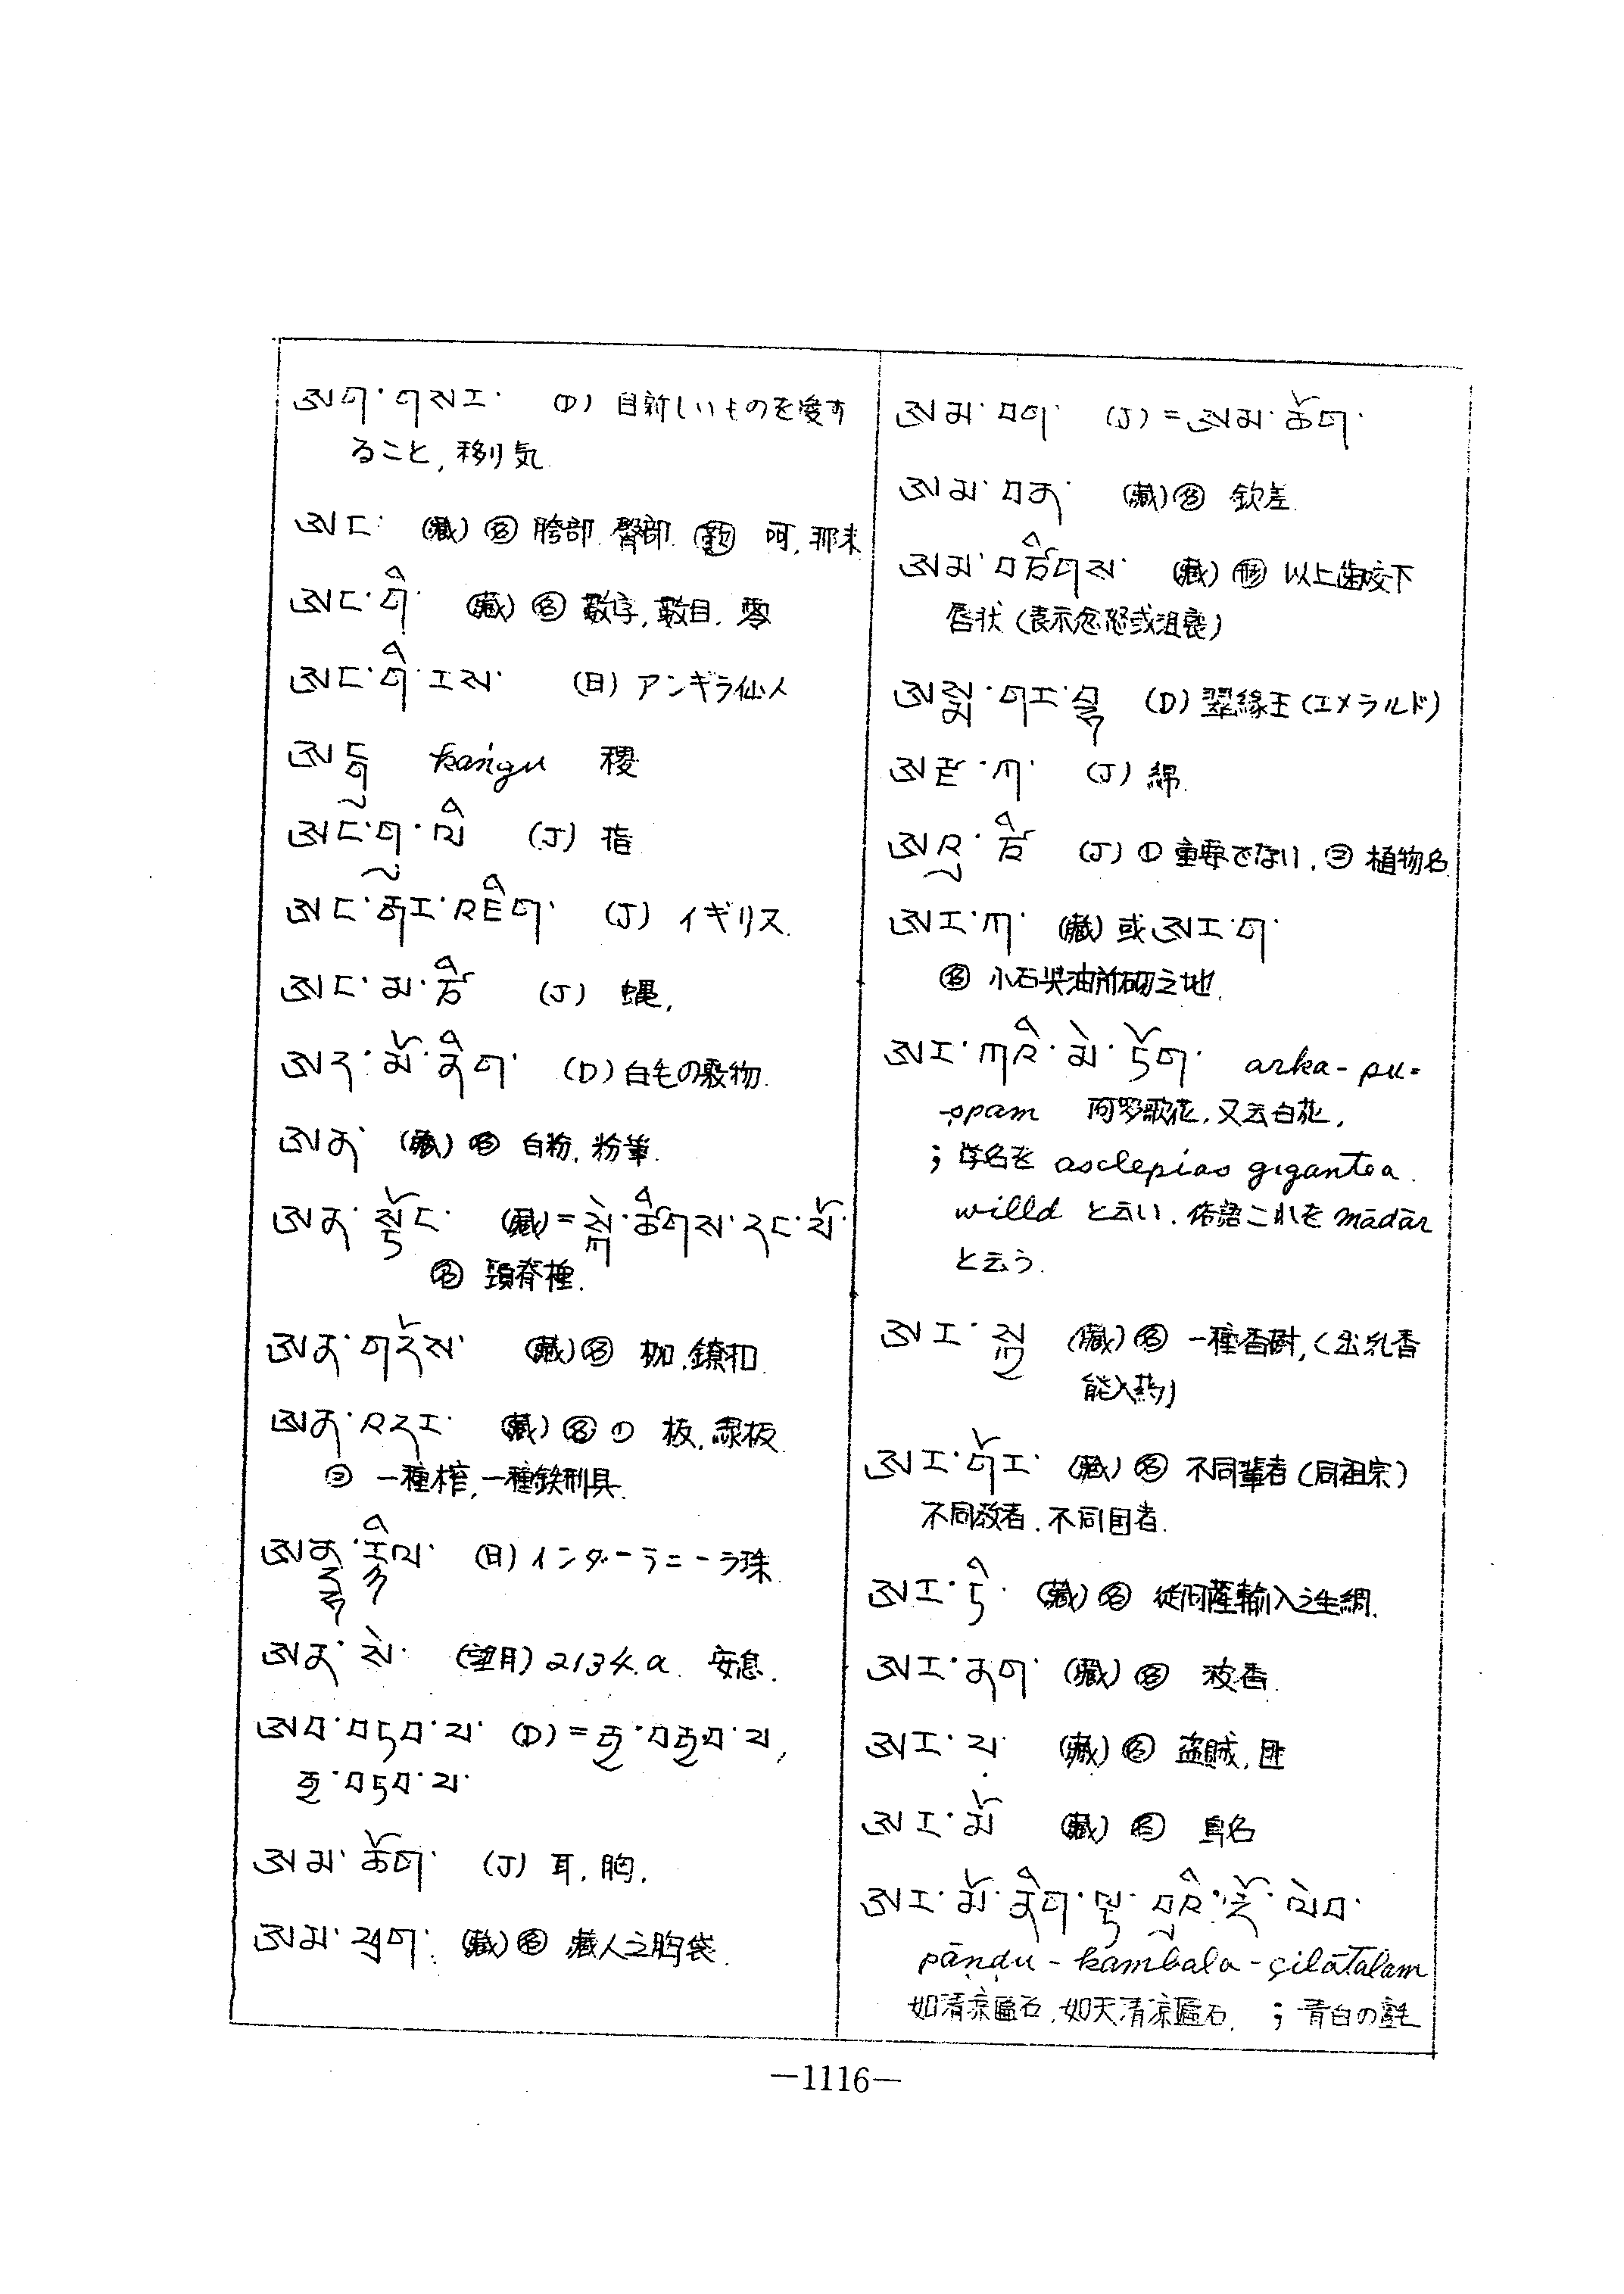 ཨག་གསར་ (D) 目新しいものを愛す
ること, 移り気
ཨང་ (藏) 名 胯部. 臀部. 歎 呵, 那末
ཨང་གི་ (藏) 名 數字, 數目. 零
ཨང་གི་རས་ (日) アンギラ仙人
kaṅgu 稷
ཨང་གུ་ལི (J) 指
(J) イギリス.
ཨང་མ་ཚི (J) 蠅,
ཨད་མོ་ནིག་ (D) 白毛の敷物.
ཨན་ (藏) 名 白粉, 粉筆.
ཨན་སྟོང་ (藏) =
名 頸脊種.
(藏) 名 枷, 鐐扣
ཨན་འདར་ (藏) 名 ① 板,
② 一種榨, 一種鉄刑具.
(日) インダーラニーラ珠
ཨན་སེ་ (望月) 2134.a. 安息.
ཨབ་བཏབ་པ་ (D) = རྒྱ་བརྒྱབ་པ,
རྒྱ་བཏབ་པ་
ཨམ་ཚོག་ (J) 耳. 胸.
ཨམ་ཕྲག་ (藏) 名 藏人之胸袋.
ཨམ་བག་ (J) = ཨམ་ཚོག་
ཨམ་བན་ (藏) 名 欽差.
ཨམ་བཚིགས་ (藏) 形 以上歯咬下
唇状 (表示忿怒或沮喪)
(D) 翠緑玉 (エメラルド)
(J) 綿.
ཨའུ་ཚི (J) ① 重要でない. ② 植物名
ཨར་ཀ་ (藏) 或 ཨར་ག་
名 小石柴油前砌之地.
ཨར་ཀའི་མེ་ཏོག་ arka-pu-
ṣpam 阿罗歌花, 又云白花,
; 学名を asclepias gigantea.
willd と云い. 俗語これを mādār
と云う.
(藏) 名 一種香樹, (出乳香
能入药)
ཨར་གོར་ (藏) 名 不同輩者 (同祖宗)
不同教者. 不同国者.
ཨར་ཏི་ (藏) 名 輸入之生綢.
ཨར་ནག་ (藏) 名 波香.
ཨར་པ་ (藏) 名 盗賊, 匪
ཨར་མོ (藏) 名 鳥名
ཨར་མོ་ནིག་ལྟ་བུའི་རྡོ་ལེབ་
pāṇḍu-kambala-çilātalam
如清涼匾石, 如天清涼匾石. ; 青白の
—1116—